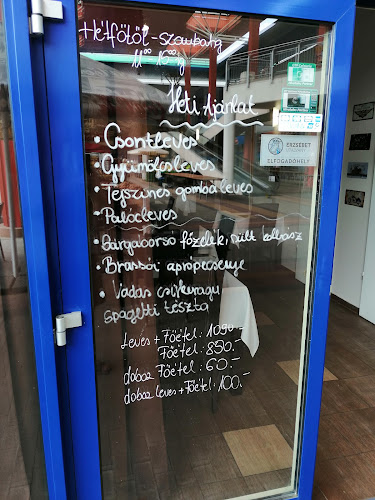 Hétfőtől - Szombatig
11⁰⁰ 16⁰⁰ ig
Heti Ajánlat
ERZSÉBET
UTALVÁNY
ELFOGADÓHELY
• Csontleves
• Gyümölcsleves
• Tejszínes gombaleves
• Palócleves
• Sárgaborsó főzelék, sült kolbász
• Brassói aprópecsenye
• Vadas csirkeragu
spagetti tészta
Leves + Főétel : 1090.-
Főétel : 850.-
doboz Főétel : 60.-
doboz leves + Főétel : 100.-